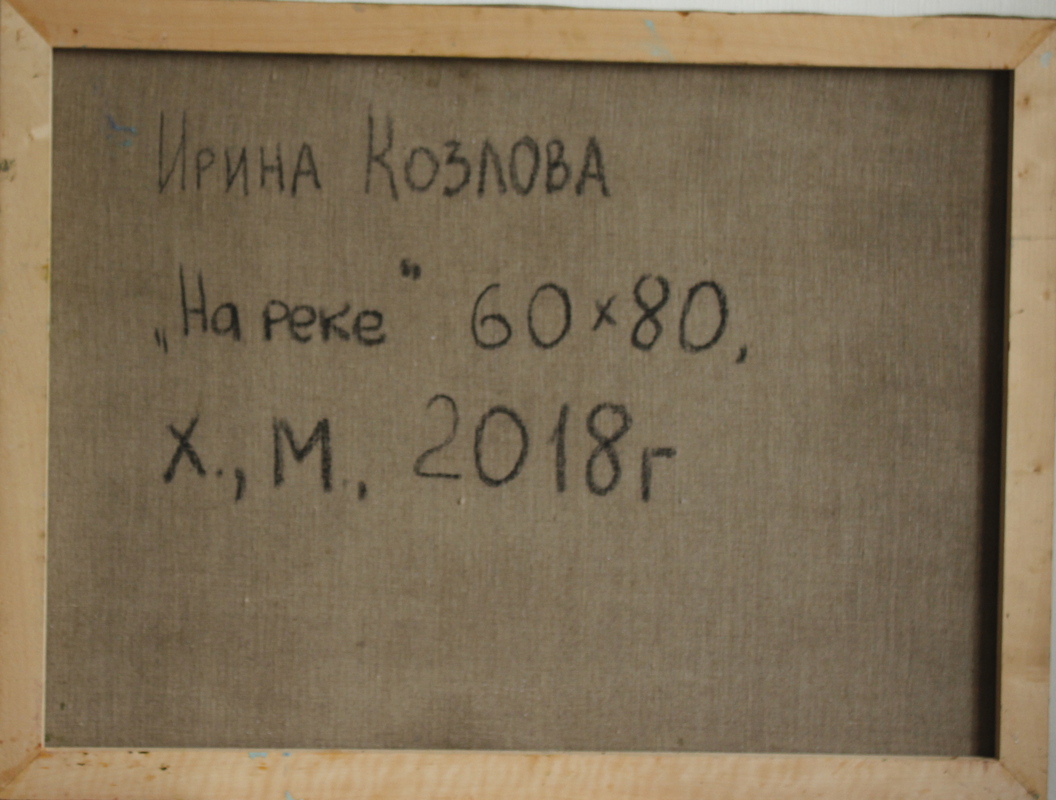 Ирина Козлова
„На реке“ 60×80,
Х., М., 2018г